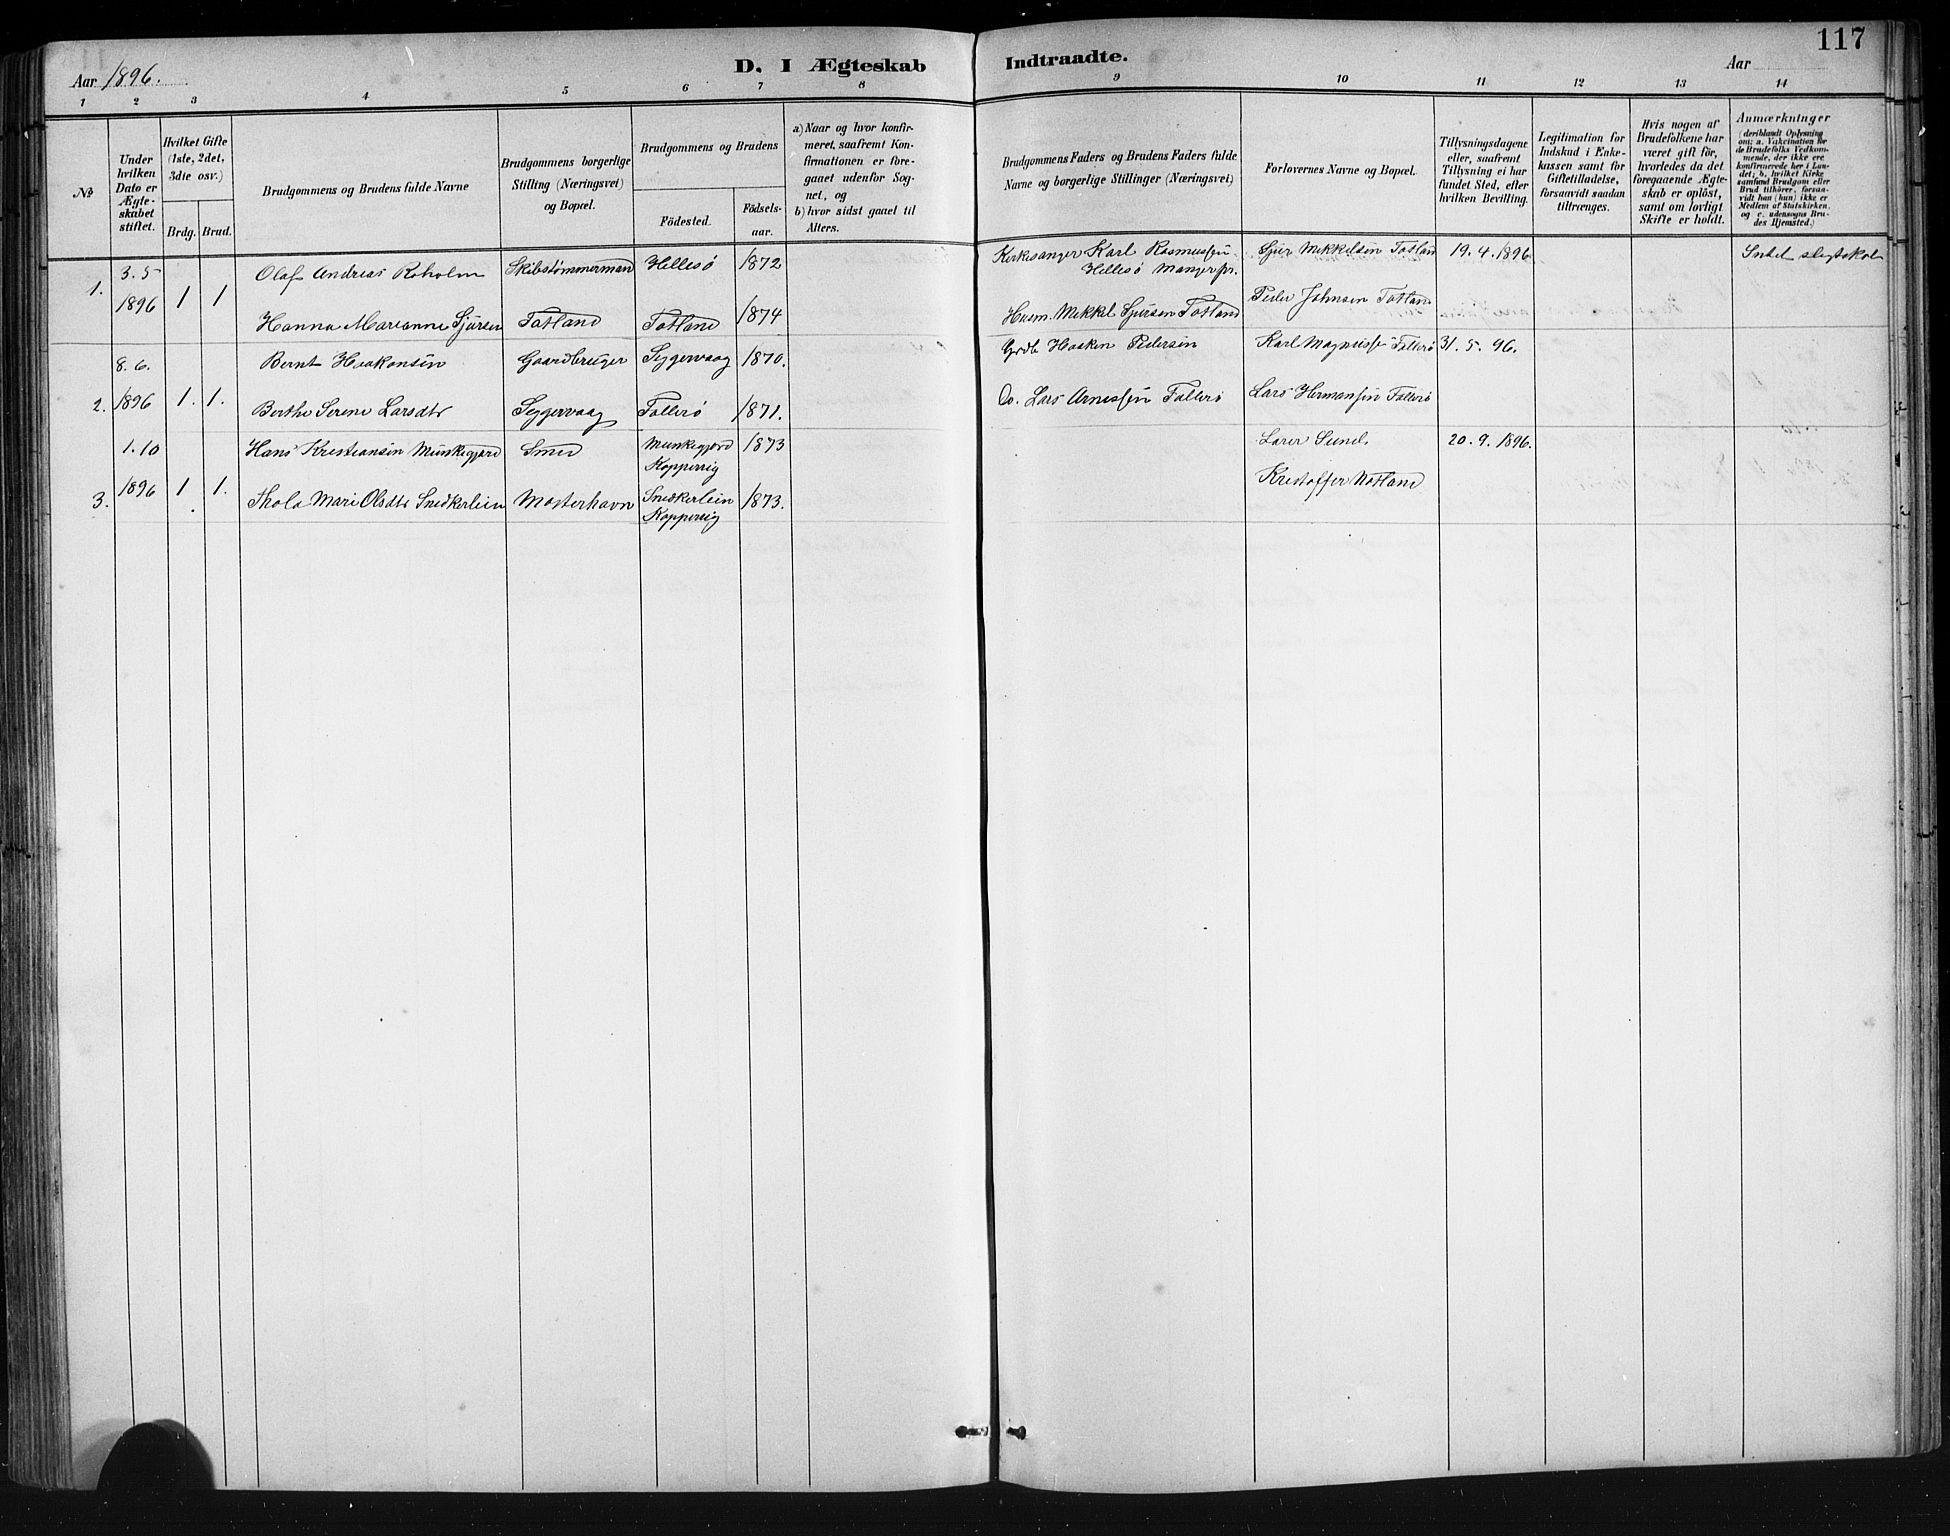 117
Aar 1896.
D. I Ægteskab Indtraadte.
Aar
1 2 3 4 5 6 7 8 9 10 11 12 13 14
№
Under hvilken Dato er Ægteskabet stiftet.
Hvilket Gifte (1ste, 2det, 3die osv.)
Brdg. Brud.
Brudgommens og Brudens fulde Navne
Brudgommens borgerlige Stilling (Næringsvei) og Bopæl.
Brudgommens og Brudens
Födested.
Födselsaar.
a) Naar og hvor konfirmeret, saafremt Konfirmationen er foregaaet udenfor Sognet, og
b) hvor sidst gaaet til Alters.
Brudgommens Faders og Brudens Faders fulde Navne og borgerlige Stillinger (Næringsvei)
Forlovernes Navne og Bopæl.
Tillysningsdagene eller, saafremt Tillysning ei har fundet Sted, efter hvilken Bevilling.
Legitimation for Indskud i Enkekassen samt for Giftetilladelse, forsaavidt saadan tiltrænges.
Hvis nogen af Brudefolkene har været gift för, hvorledes da det foregaaende Ægteskab er oplöst, samt om lovligt Skifte er holdt.
Anmærkninger
(deriblandt Oplysning om: a. Vakcination för de Brudefolks Vedkommende, der ikke ere konfirmerede her i Landet; b. hvilket Kirkesamfund Brudgom eller Brud tilhörer, forsaavidt han (hun) ikke er Medlem af Statskirken, og c. udensogns Brudes Hjemsted.)
1. 3.5 1896 1 1
Olaf Andreas Roholm Skibstømmermand Hellesø 1872 Kirkesanger Karl Rasmussen Hellesø Manger pr. Sjur Mikkelsen Totland 19.4.1896
Hanna Marianne Sjursen Totland Totland 1874 Husm. Mikkel Sjursen Totland Peder Johnsen Totland
2. 8.6. 1896 1. 1.
Bernt Haakonsen Gaardbruger Seggervaag 1870. Grdb Haaken Pedersen Karl Magnusse Fallerø 31.5.96.
Berthe Serene Larsdtr Seggervaag Fallerø 1871. Do. Lars Arnessen Fallerø Lars Hermansen Fallerø
3. 1.10 1896 1 1.
Hans Kristiansen Munkegjord Smed Munkegjord Koppervig 1873 20.9.1896.
Mari Olsdtr Snedkerlein Mosterhavn Snedkerlein Koppervig 1873. Kristoffer Notland